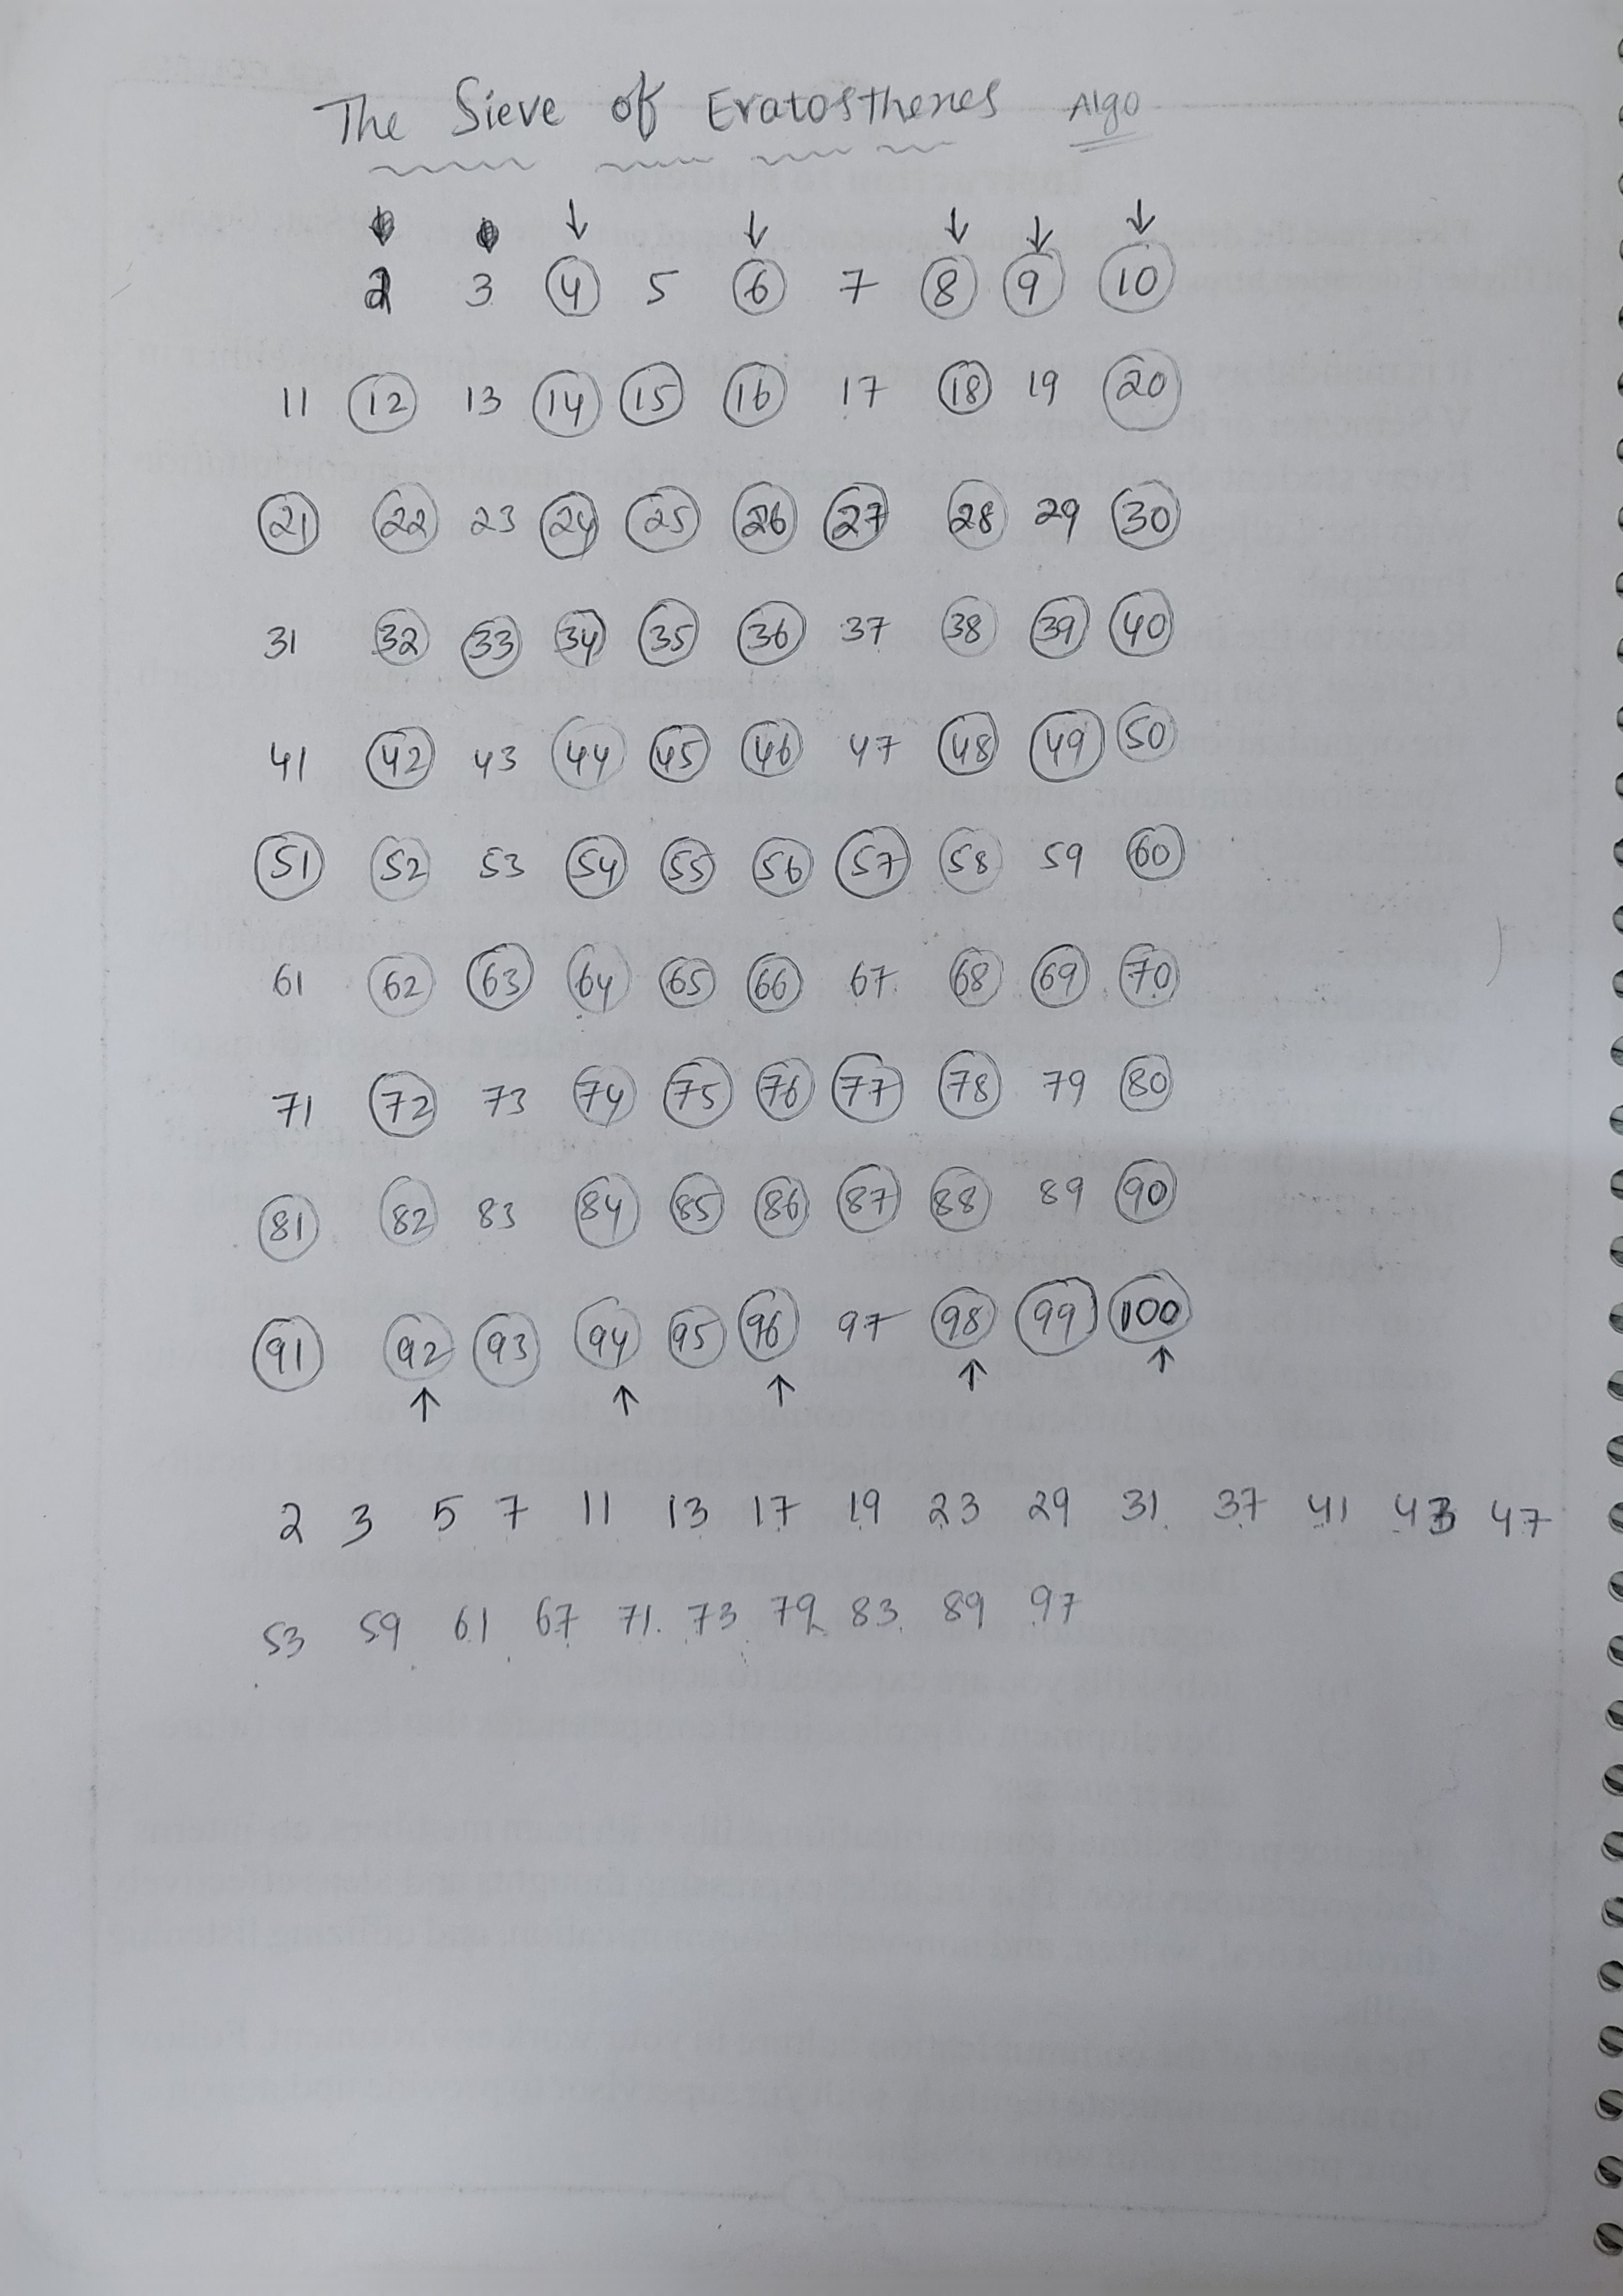 The Sieve of Eratosthenes Algo
2 3 4 5 6 7 8 9 10
11 12 13 14 15 16 17 18 19 20
21 22 23 24 25 26 27 28 29 30
31 32 33 34 35 36 37 38 39 40
41 42 43 44 45 46 47 48 49 50
51 52 53 54 55 56 57 58 59 60
61 62 63 64 65 66 67 68 69 70
71 72 73 74 75 76 77 78 79 80
81 82 83 84 85 86 87 88 89 90
91 92 93 94 95 96 97 98 99 100
2 3 5 7 11 13 17 19 23 29 31 37 41 43 47
53 59 61 67 71 73 79 83 89 97